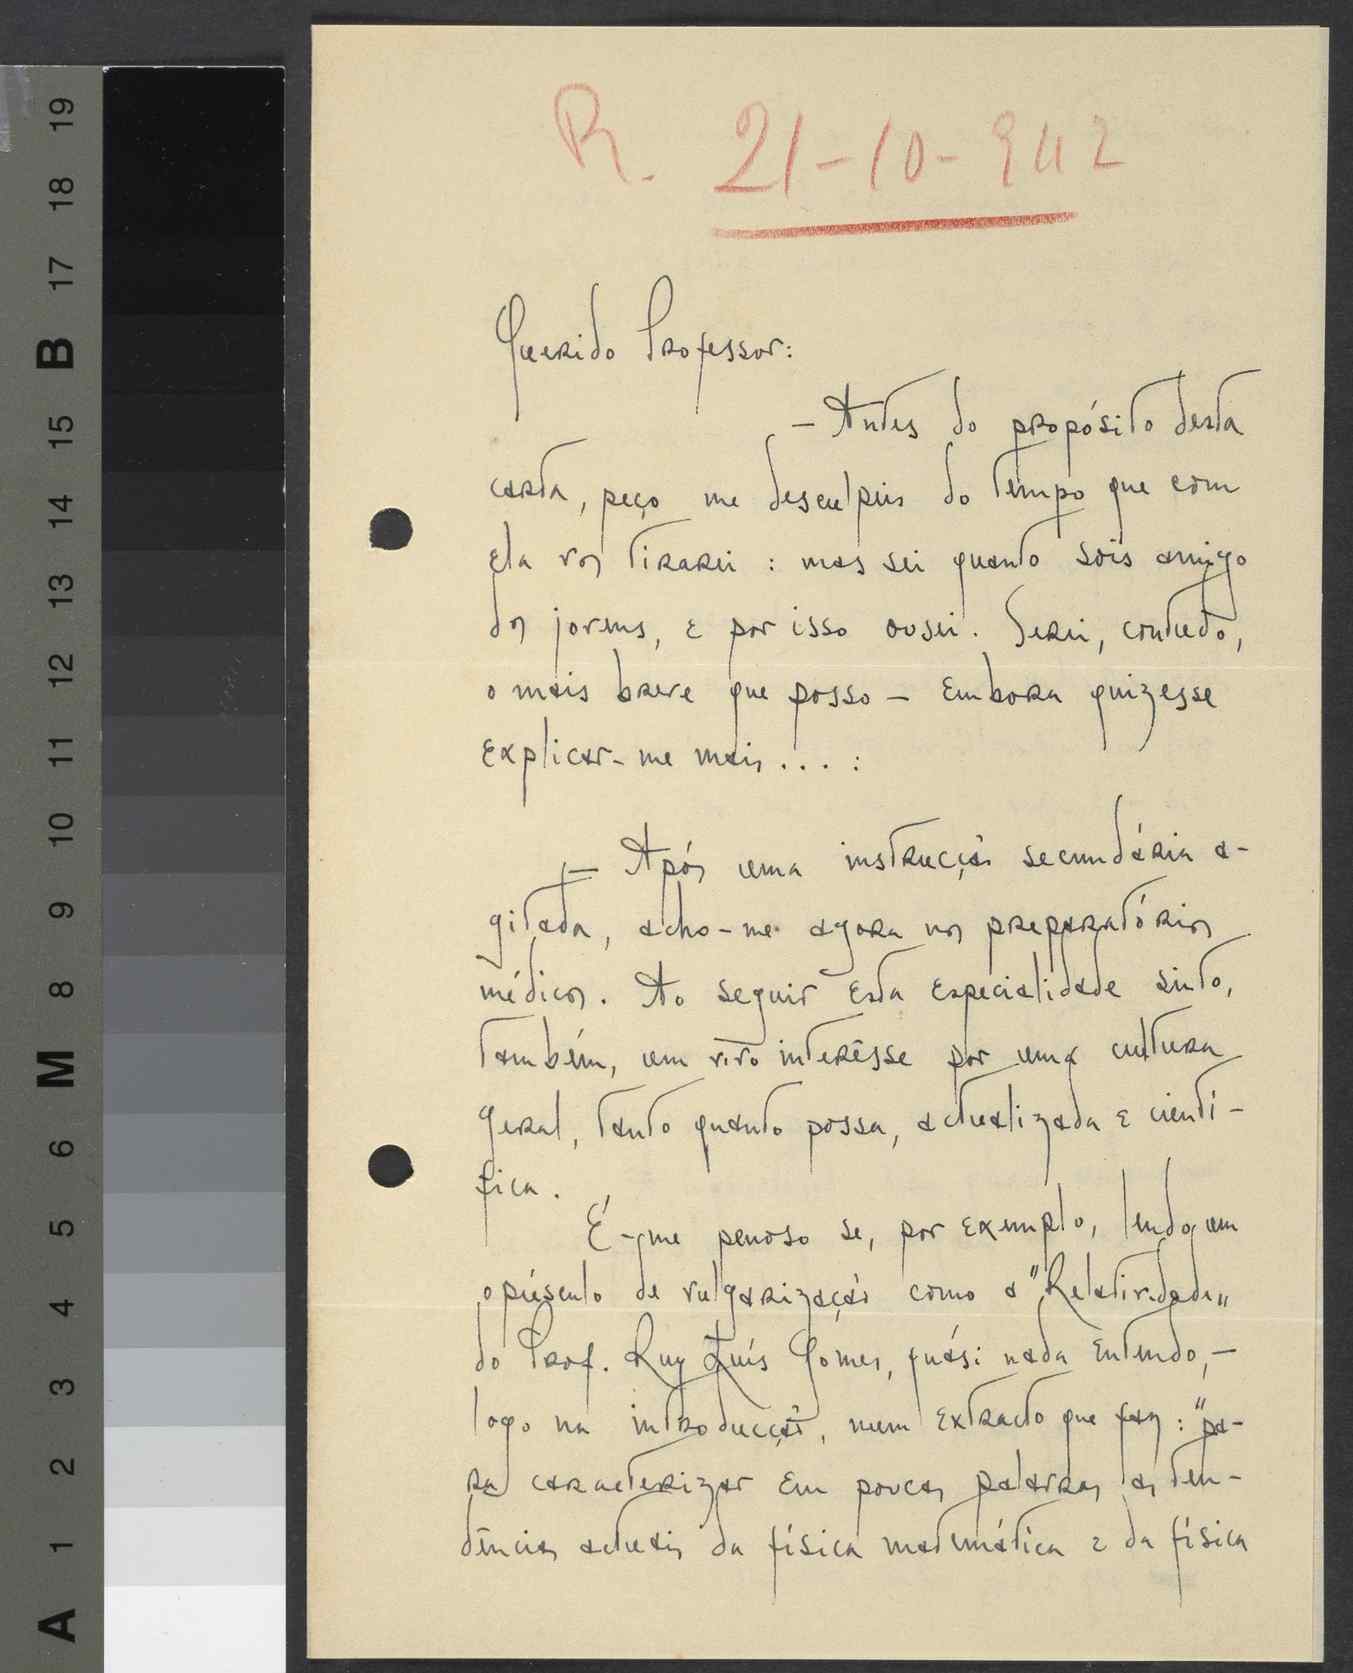 19
18
17
B
15
14
13
12
11
10
9
8
M
6
5
4
3
2
1
A
R. 21-10-942
Querido Professor:
— Antes do propósito desta
carta, peço me desculpeis do tempo que com
ela vos tirarei : mas sei quanto sois amigo
dos jovens, e por isso ousei. Serei, contudo,
o mais breve que posso — Embora quizesse
explicar-me mais . . . :
— Após uma instrucção secundária a-
gitada, acho-me agora nos preparatórios
médicos. Ao seguir esta especialidade sinto,
também, um vivo interêsse por uma cultura
geral, tanto quanto possa, actualizada e cientí-
fica.
É-me penoso se, por exemplo, lendo um
opúsculo de vulgarização como a "Relatividade„
do Prof. Ruy Luís Gomes, quási nada entendo, —
logo na introducção, num extracto que faz : "pa-
ra caracterizar em poucas palavras as ten-
dências actuais da física matemática e da física